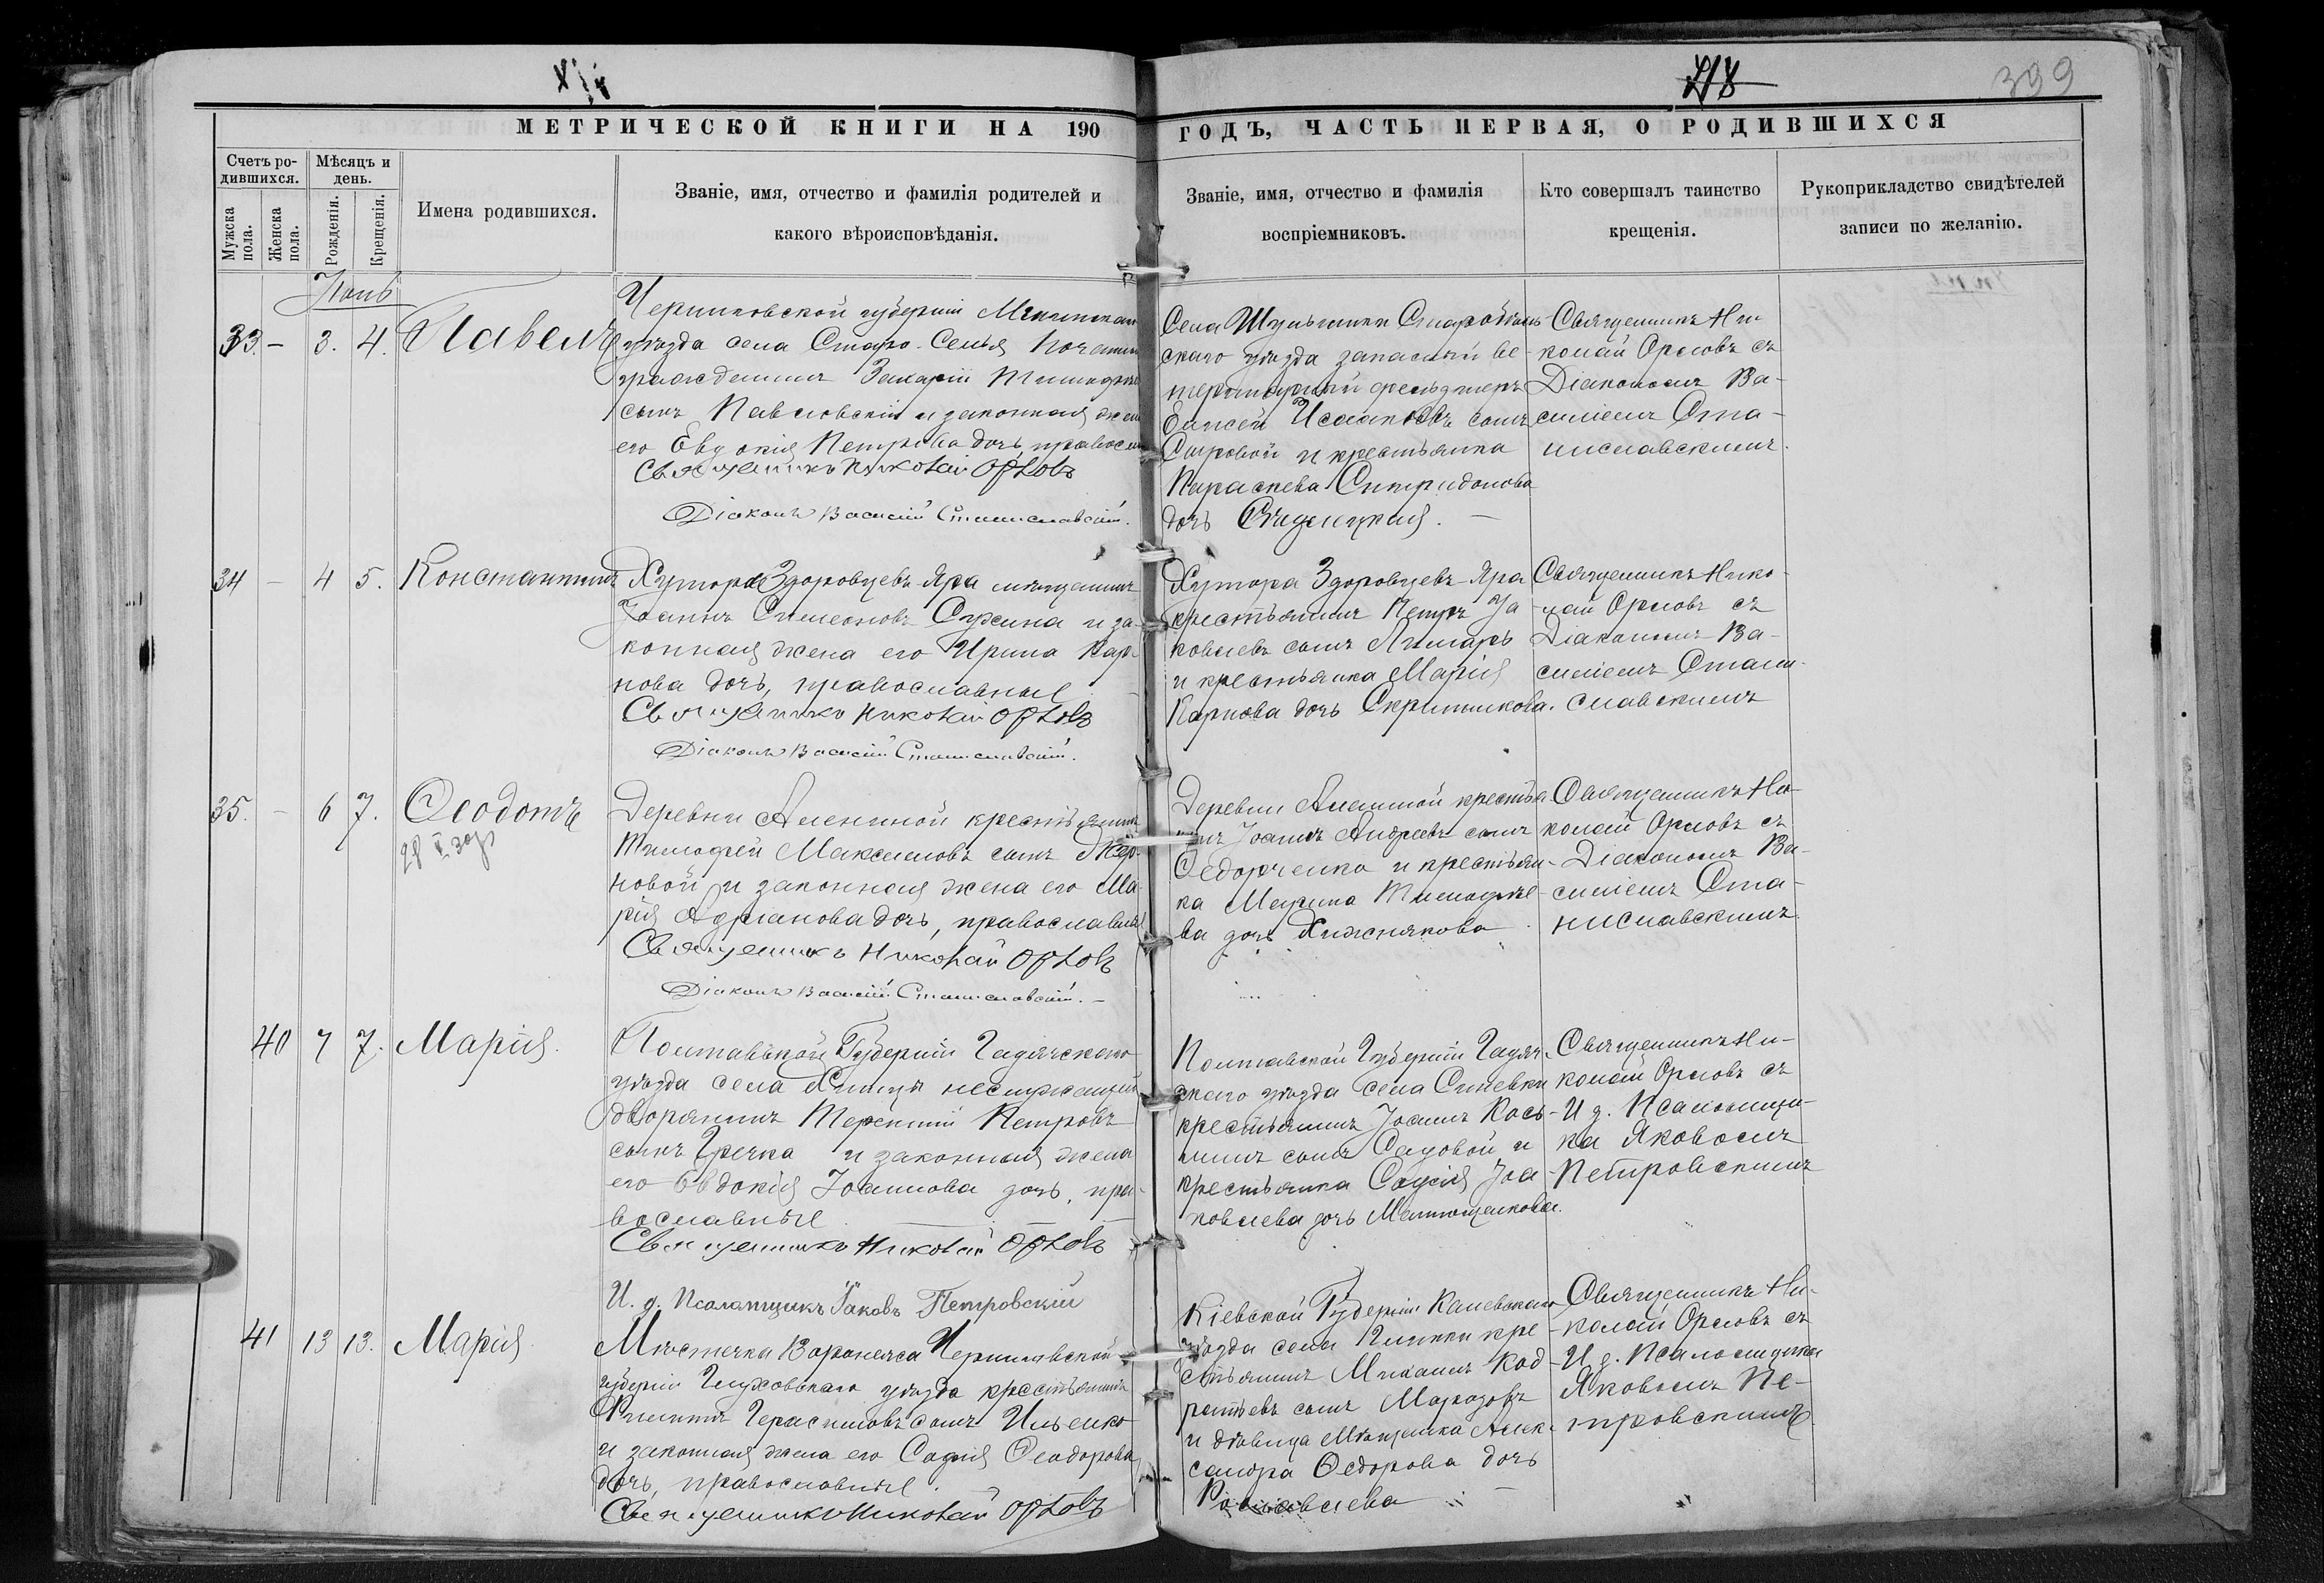 399
МЕТРИЧЕСКОЙ КНИГИ НА 190
ГОДЪ, ЧАСТЬ ПЕРВАЯ, О РОДИВШИХСЯ
Счетъ ро-
дившихся.
Мужска
пола.
Женска
пола.
Мѣсяцъ и
день.
Рожденія.
Крещенія.
Имена родившихся.
Званіе, имя, отчество и фамилія родителей и
какого вѣроисповѣданія.
Званіе, имя, отчество и фамилія
воспріемниковъ.
Кто совершалъ таинство
крещенія.
Рукоприкладство свидѣтелей
записи по желанію.
33. – 3. 4. Павелъ
Черниговской губерніи
уѣзда села Старо-
гражданинъ Захарій
сынъ Павловскій и законная
его Евдокія Петрова дочь,
Священникъ Николай Орловъ
Діаконъ Василій Станиславскій.
Села Шульгинки Старобѣль-
скаго уѣзда запасный ве-
теринарный фельдшеръ
Елисей Исааковъ сынъ
Сыровой и крестьянка
Параскева Спиридонова
дочь
Священникъ Ни-
колай Орловъ съ
Діакономъ Ва-
силіемъ Ста-
ниславскимъ.
34 – 4 5. Константинъ
Хутора Здоровцевъ Яра мѣщанинъ
Іоаннъ Симеоновъ и за-
конная жена его Ирина Кар-
пова дочь, православные
Священникъ Николай Орловъ
Діаконъ Василій Станиславскій.
Хутора Здоровцевъ Яра
крестьянинъ Петръ Іа-
ковлевъ сынъ Лимарь
и крестьянка Марія
Карпова дочь Скрипникова.
Священникъ Нико-
лай Орловъ съ
Діакономъ Ва-
силіемъ Стани-
славскимъ
35. – 6 7. Ѳеодотъ
Деревни Алениной крестьянинъ
Тимофей Максимовъ сынъ Жер-
новой и законная жена его Ма-
рія Адріанова дочь, православные
Священникъ Николай Орловъ
Діаконъ Василій Станиславскій. –
Деревни Алениной крестья-
нинъ Іоаннъ Андреевъ сынъ
Ѳедорченко и крестьян-
ка Марина Тимофее-
ва дочь Хижнякова
Священникъ Ни-
колай Орловъ съ
Діакономъ Ва-
силіемъ Ста-
ниславскимъ.
40 7 7. Марія.
Полтавской Губерніи Гадячскаго
уѣзда села неслужащій
дворянинъ Терентій Петровъ
сынъ Гречка и законная жена
его Евдокія Іоаннова дочь, пра-
вославные
Священникъ Николай Орловъ
И. д. Псаломщикъ Іаковъ Петровскій
Полтавской Губерніи Гадяч-
скаго уѣзда села Синевки
крестьянинъ Іоаннъ Кось-
минъ сынъ Садовой и
крестьянка Софія
ковлева дочь Матющенкова.
Священникъ Ни-
колай Орловъ съ
И д. Псаломщи-
ка Яковомъ
Петровскимъ
41 13 13. Марія.
Мѣстечка Воронежа Черниговской
губерніи Глуховскаго уѣзда крестьянинъ
Филиппъ Герасимовъ сынъ Ильенко
и законная жена его Софія Ѳеодорова
дочь, православные.
Священникъ Николай Орловъ
Кіевской Губерніи Каневскаго
уѣзда села кре-
стьянинъ Михаилъ Код-
ратьевъ сынъ
и дѣвица Мѣщанка Алек-
сандра Ѳедорова дочь
Священникъ Ни-
колай Орловъ съ
И д. Псаломщика
Яковомъ Пе-
тровскимъ